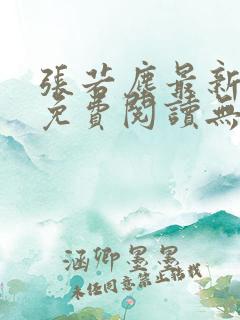 張若塵最新
免費閱讀無
涵卿墨墨
未经同意禁止转载